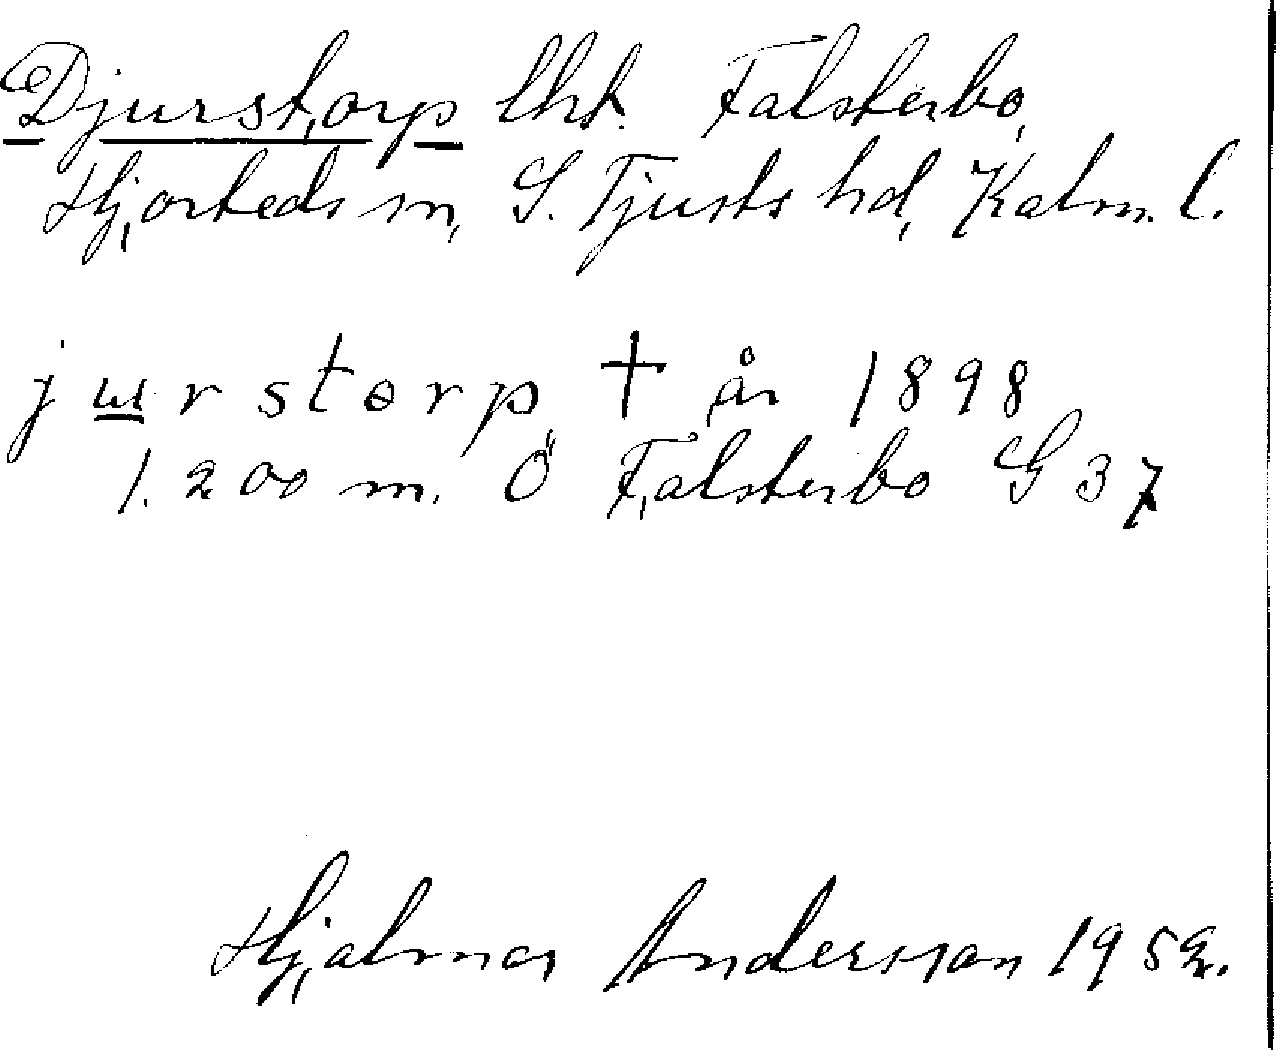 Djurstorp lht. Falsterbo,
Hjorteds sn, S. Tjusts hd, Kalm. l.
jurstorp † år 1898
1.200 m. Ö Falsterbo G 37
Hjalmar Andersson 1952.